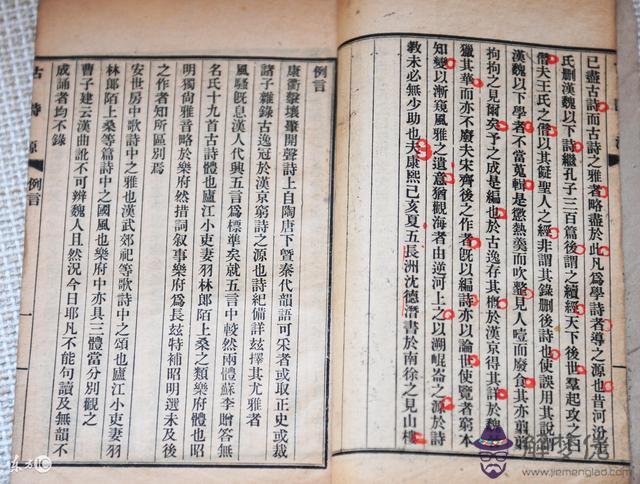 已盡古詩而古詩之雅者略盡於此凡爲學詩者導之源也昔河汾
氏刪漢魏以下詩繼孔子三百篇後謂之續經天下後世羣起攻之
僭夫王氏之僭以其儗聖人之經非謂其錄刪後詩也使誤用其說
漢魏以下學者不當蒐輯是懲熱羹而吹虀見人噎而廢食其亦翦
拘拘之見爾矣予之成是編也於古逸存其概於漢京得其詳於魏
獵其華而亦不廢夫宋齊後之作者旣以編詩亦以論世使覽者窮本
知變以漸窺風雅之遺意猶觀海者由逆河上之以溯崐崙之源於詩
教未必無少助也夫康熙己亥夏五長洲沈德潛書於南徐之見山樓
例言
康衢擊壤肇開聲詩上自陶唐下曁秦代韻語可采者或取正史或裁
諸子雜錄古逸冠於漢京窮詩之源也詩紀備詳玆擇其尤雅者
風騷旣息漢人代興五言爲標準矣就五言中較然兩體蘇李贈答無
名氏十九首古詩體也廬江小吏妻羽林郎陌上桑之類樂府體也昭
明獨尚雅音略於樂府然措詞叙事樂府爲長玆特補昭明選未及後
之作者知所區別焉
安世房中歌詩中之雅也漢武郊祀等歌詩中之頌也廬江小吏妻羽
林郎陌上桑等篇詩中之國風也樂府中亦具三體當分別觀之
曹子建云漢曲訛不可辨魏人且然況今日耶凡不能句讀及無韻不
成誦者均不錄
古詩源 例言 一
解夢佬
www.jiemenglao.com